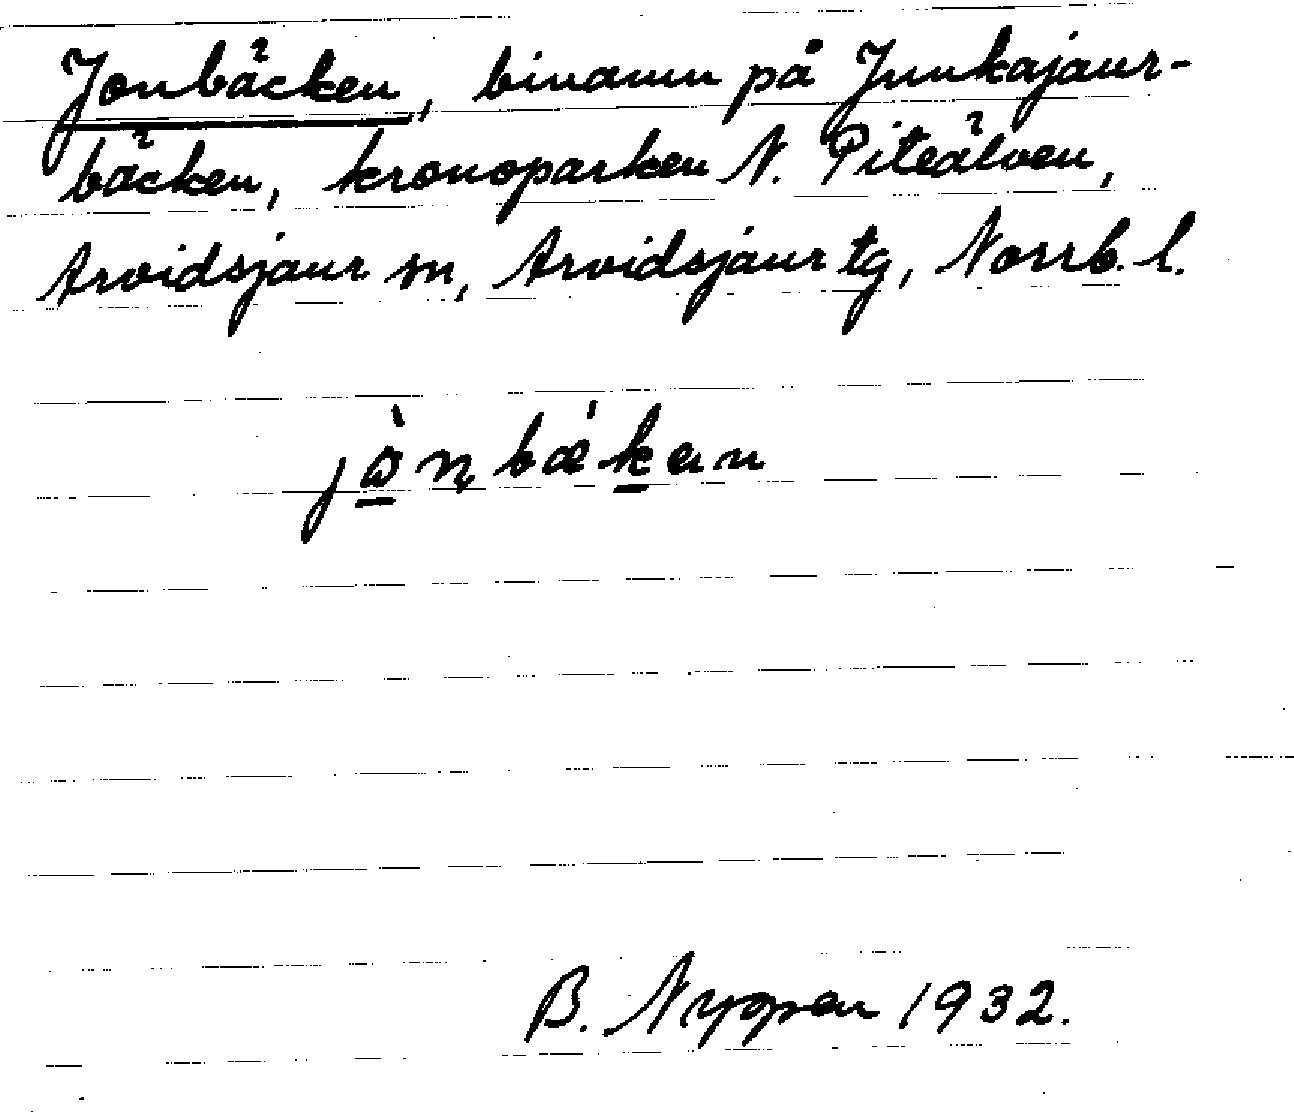 Jonbäcken, binamn på Junkajaur-
bäcken, kronoparken N. Piteälven,
Arvidsjaur sn, Arvidsjaur tg, Norrb. l.
B. Nygren 1932.